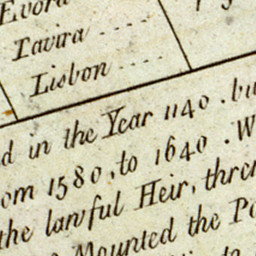 Evora
Tavira .....
Lisbon .....
d in the Year 1140 . bu
om 1580, to 1640 . W
the lawful Heir, thre
Mounted the Po